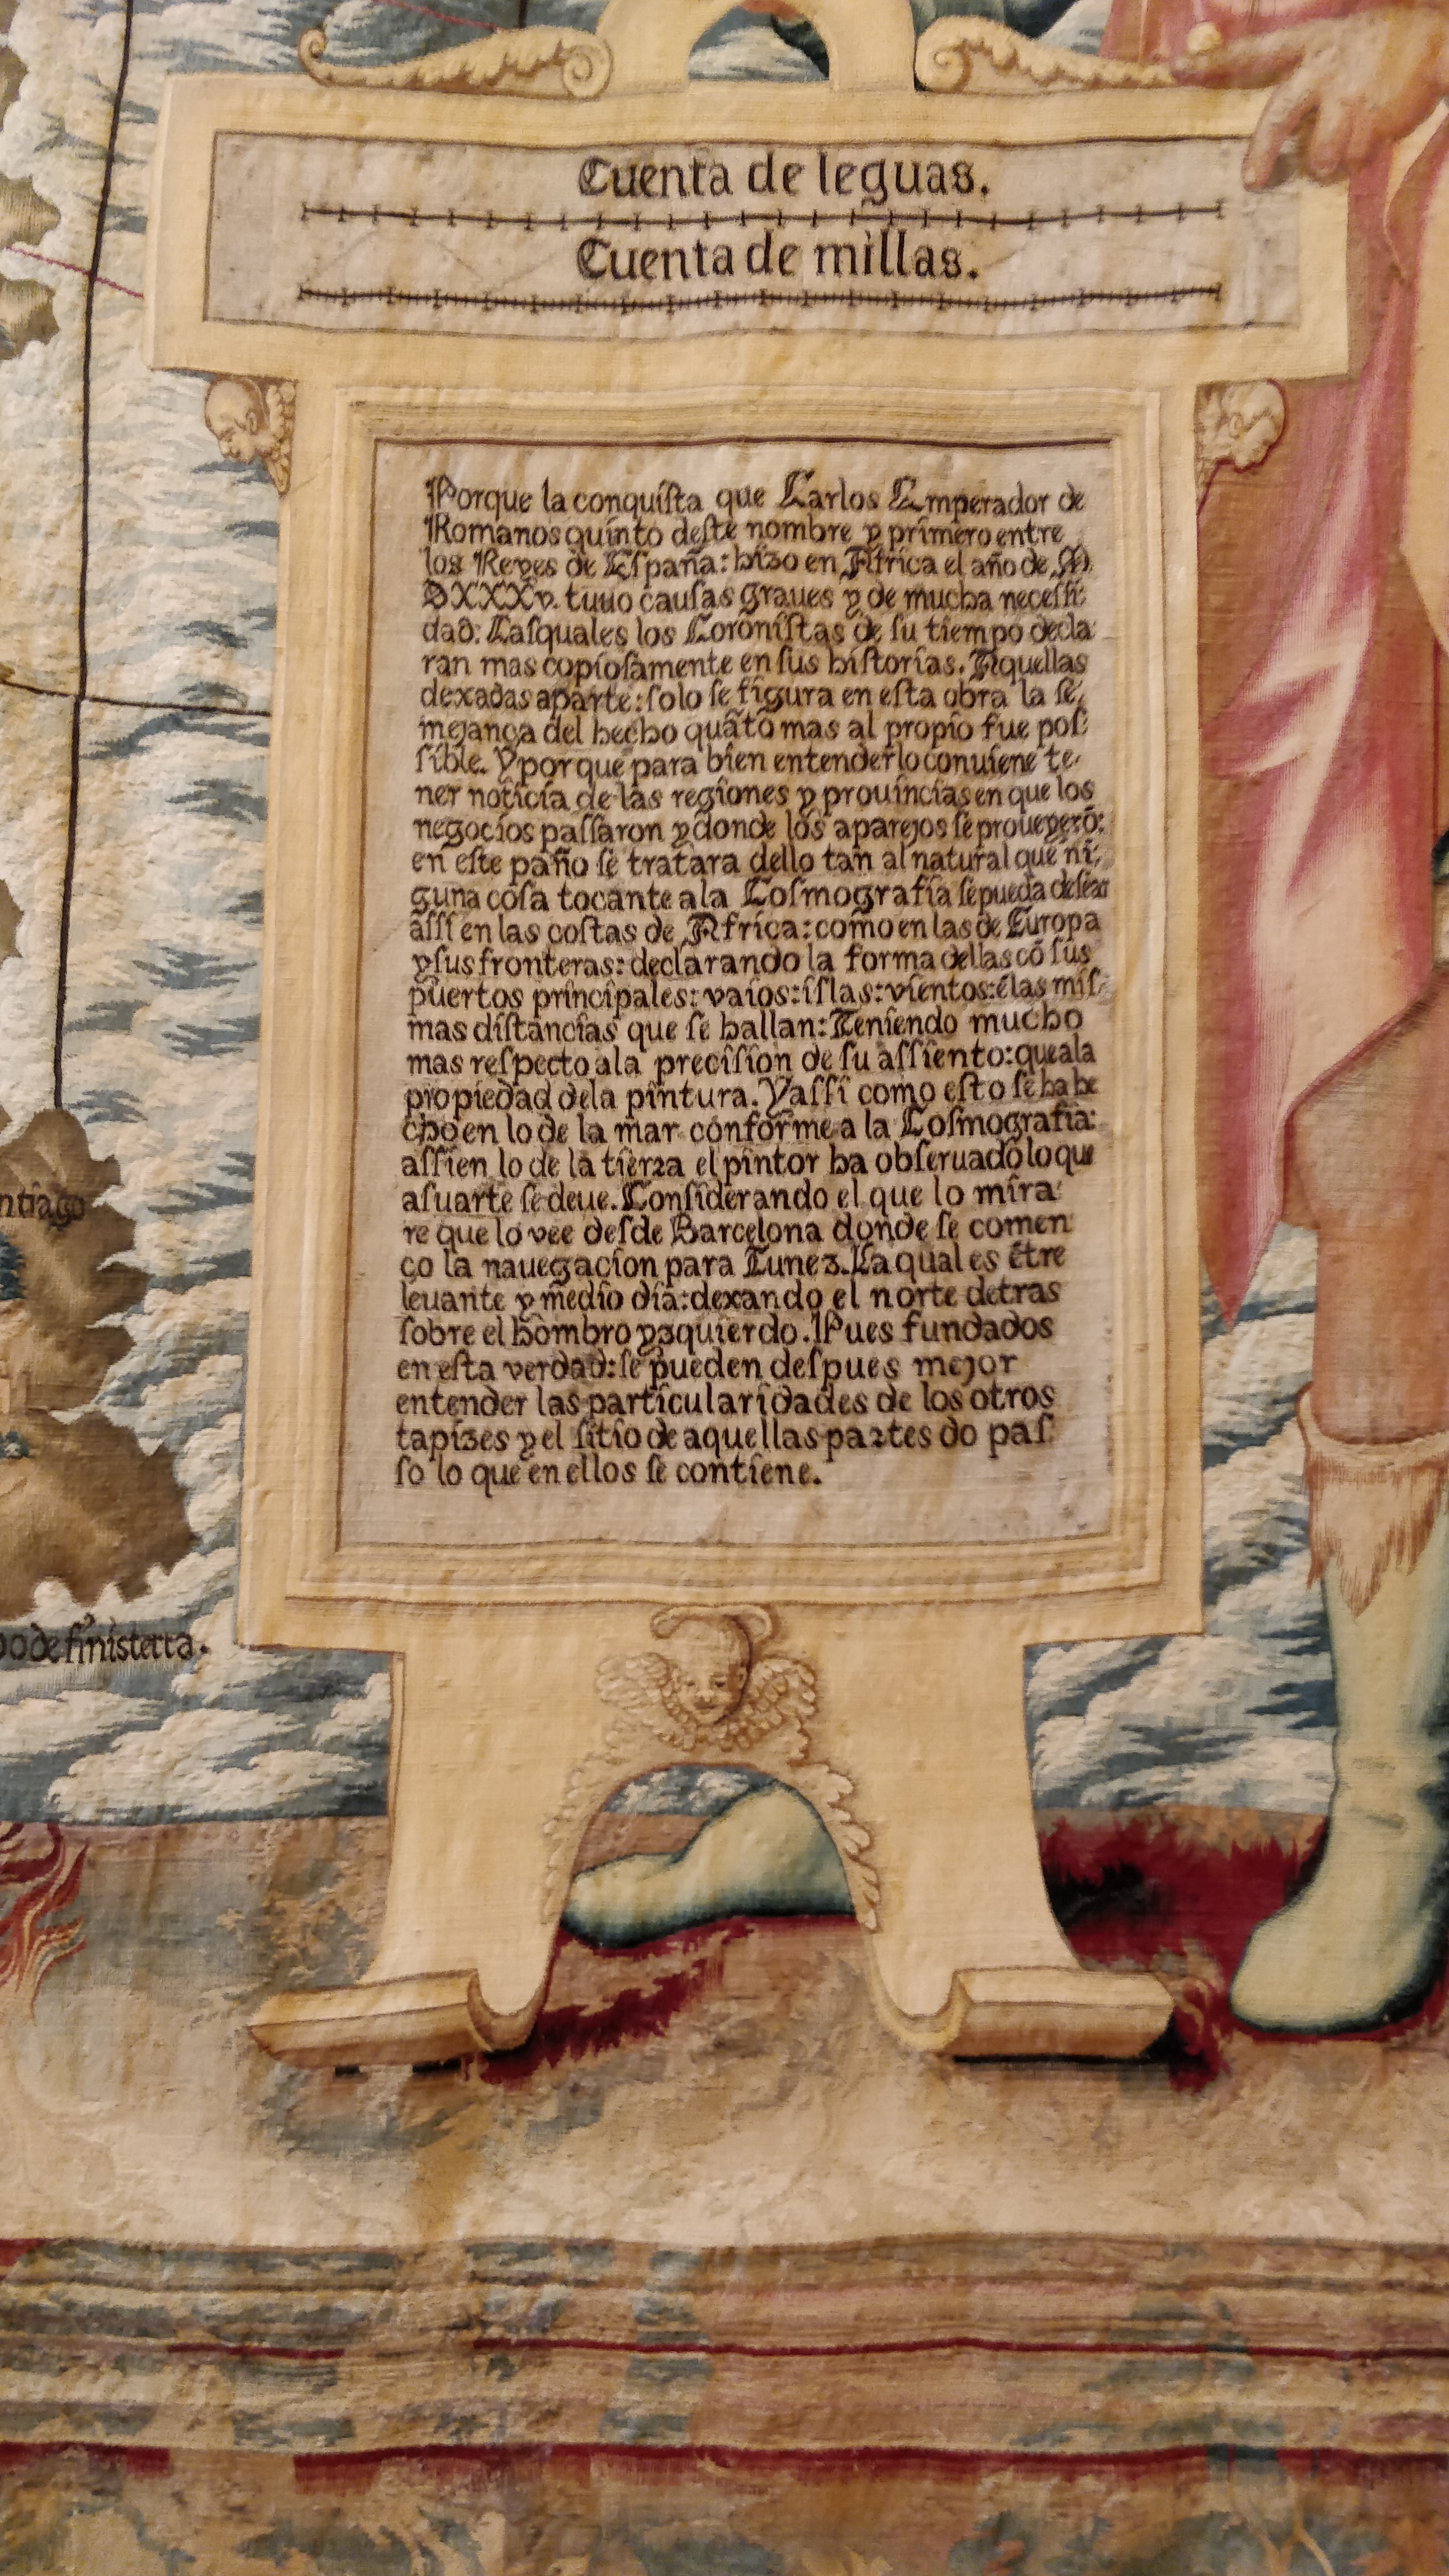 Cuenta de leguas.
Cuenta de millas.
Porque la conquiſta que Carlos Emperador de
Romanos quinto deſte nombre y primero entre
los Reyes de Eſpaña: hizo en Africa el año de M
DXXXv. tuuo cauſas graues y de mucha neceſſi
dad: Las quales los Coroniſtas de ſu tiempo decla
ran mas copioſamente en ſus hiſtorias. Aquellas
dexadas aparte: ſolo ſe figura en eſta obra la ſe
mejança del hecho quãto mas al propio fue poſ
ſible. Y porque para bien entenderlo conuiene te
ner noticia de las regiones y prouincias en que los
negocios paſſaron y donde los aparejos ſe proueyerõ:
en eſte paño ſe tratara dello tan al natural que ni
guna coſa tocante ala Coſmografia ſe pueda deſear
aſſi en las coſtas de Africa: como en las de Europa
y ſus fronteras: declarando la forma dellas cõ ſus
puertos principales: vaios: iſlas: vientos: ẽ las miſ
mas diſtancias que ſe hallan: Teniendo mucho
mas reſpecto ala preciſion de ſu aſſiento: que ala
propiedad dela pintura. Y aſſi como eſto ſe ha he
cho en lo de la mar conforme a la Coſmografia:
aſſi en lo de la tierra el pintor ha obſeruado lo que
a ſu arte ſe deue. Conſiderando el que lo mira
re que lo vee deſde Barcelona donde ſe comen
ço la nauegacion para Tunez. La qual es ẽtre
leuante y medio dia: dexando el norte detras
ſobre el hombro yzquierdo. Pues fundados
en eſta verdad: ſe pueden deſpues mejor
entender las particularidades de los otros
tapizes y el ſitio de aquellas partes do paſ
ſo lo que en ellos ſe contiene.
ntiago
o de finisterra.